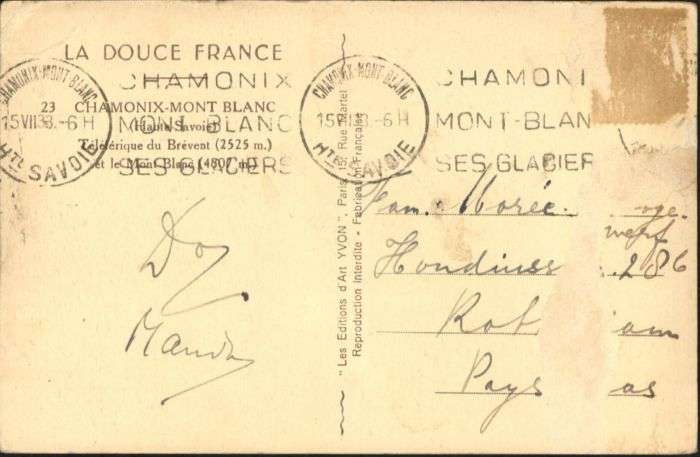 LA DOUCE FRANCE
23 CHAMONIX-MONT BLANC
(Haute-Savoie)
Téléférique du Brévent (2525 m.)
et le Mont Blanc (4807 m.)
CHAMONIX-MONT-BLANC
15 VII 38.-6H
HTE SAVOIE
CHAMONIX
MONT-BLANC
SES GLACIERS
CHAMONIX-MONT-BLANC
HTE SAVOIE
CHAMONI
MONT-BLAN
SES GLACIER
"Les Editions d'Art YVON", Paris, 15, Rue Martel
Reproduction Interdite - Fabrication Française
Fam. Morée
Hondius 286
Rot am
Pays as